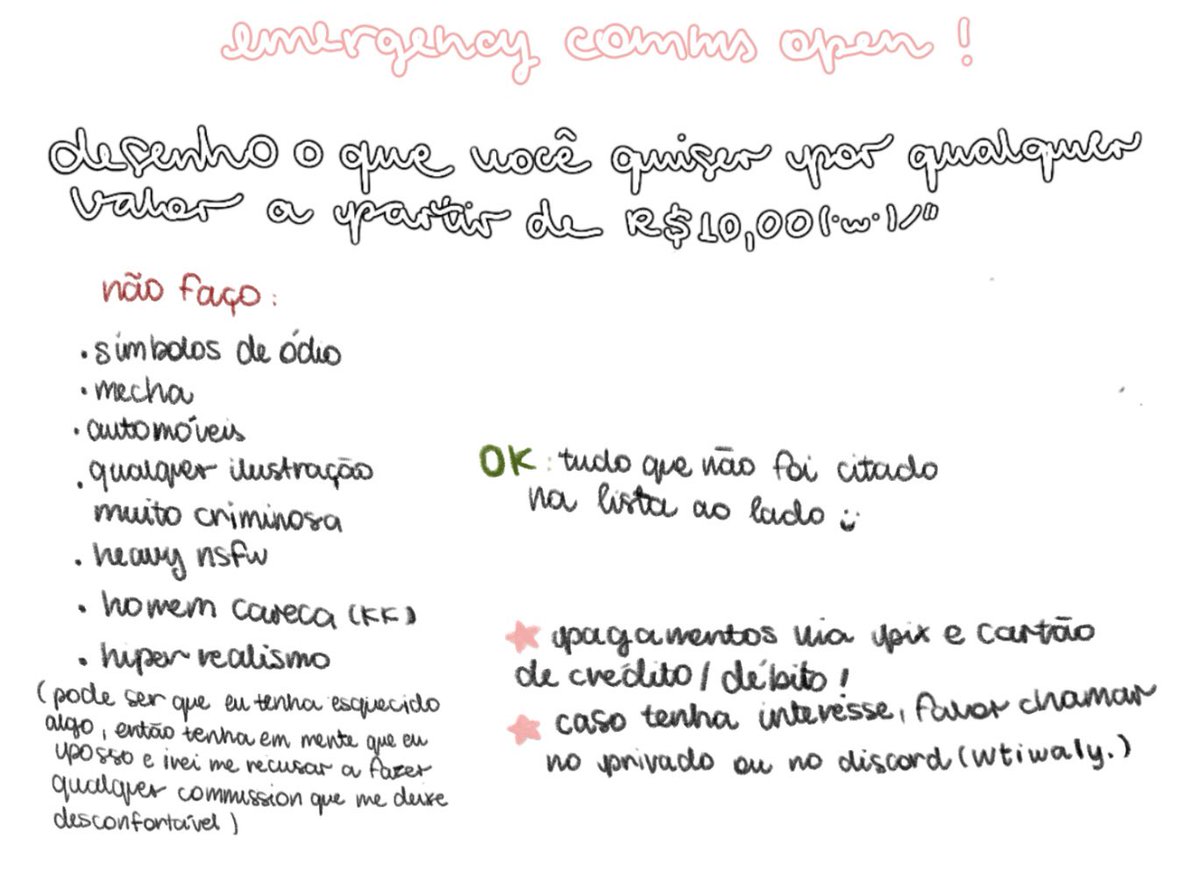 emergency comms open !
desenho o que você quiser por qualquer
valor a partir de R$10,00(·w·)/"
não faço:
• símbolos de ódio
• mecha
• automóveis
• qualquer ilustração
muito criminosa
• heavy nsfw
• homem careca (KK)
• hiper realismo
(pode ser que eu tenha esquecido
algo, então tenha em mente que eu
posso e irei me recusar a fazer
qualquer commission que me deixe
desconfortável)
OK: tudo que não foi citado
na lista ao lado :)
★ pagamentos via pix e cartão
de crédito/débito!
★ caso tenha interesse, favor chamar
no privado ou no discord (wtiwaly.)